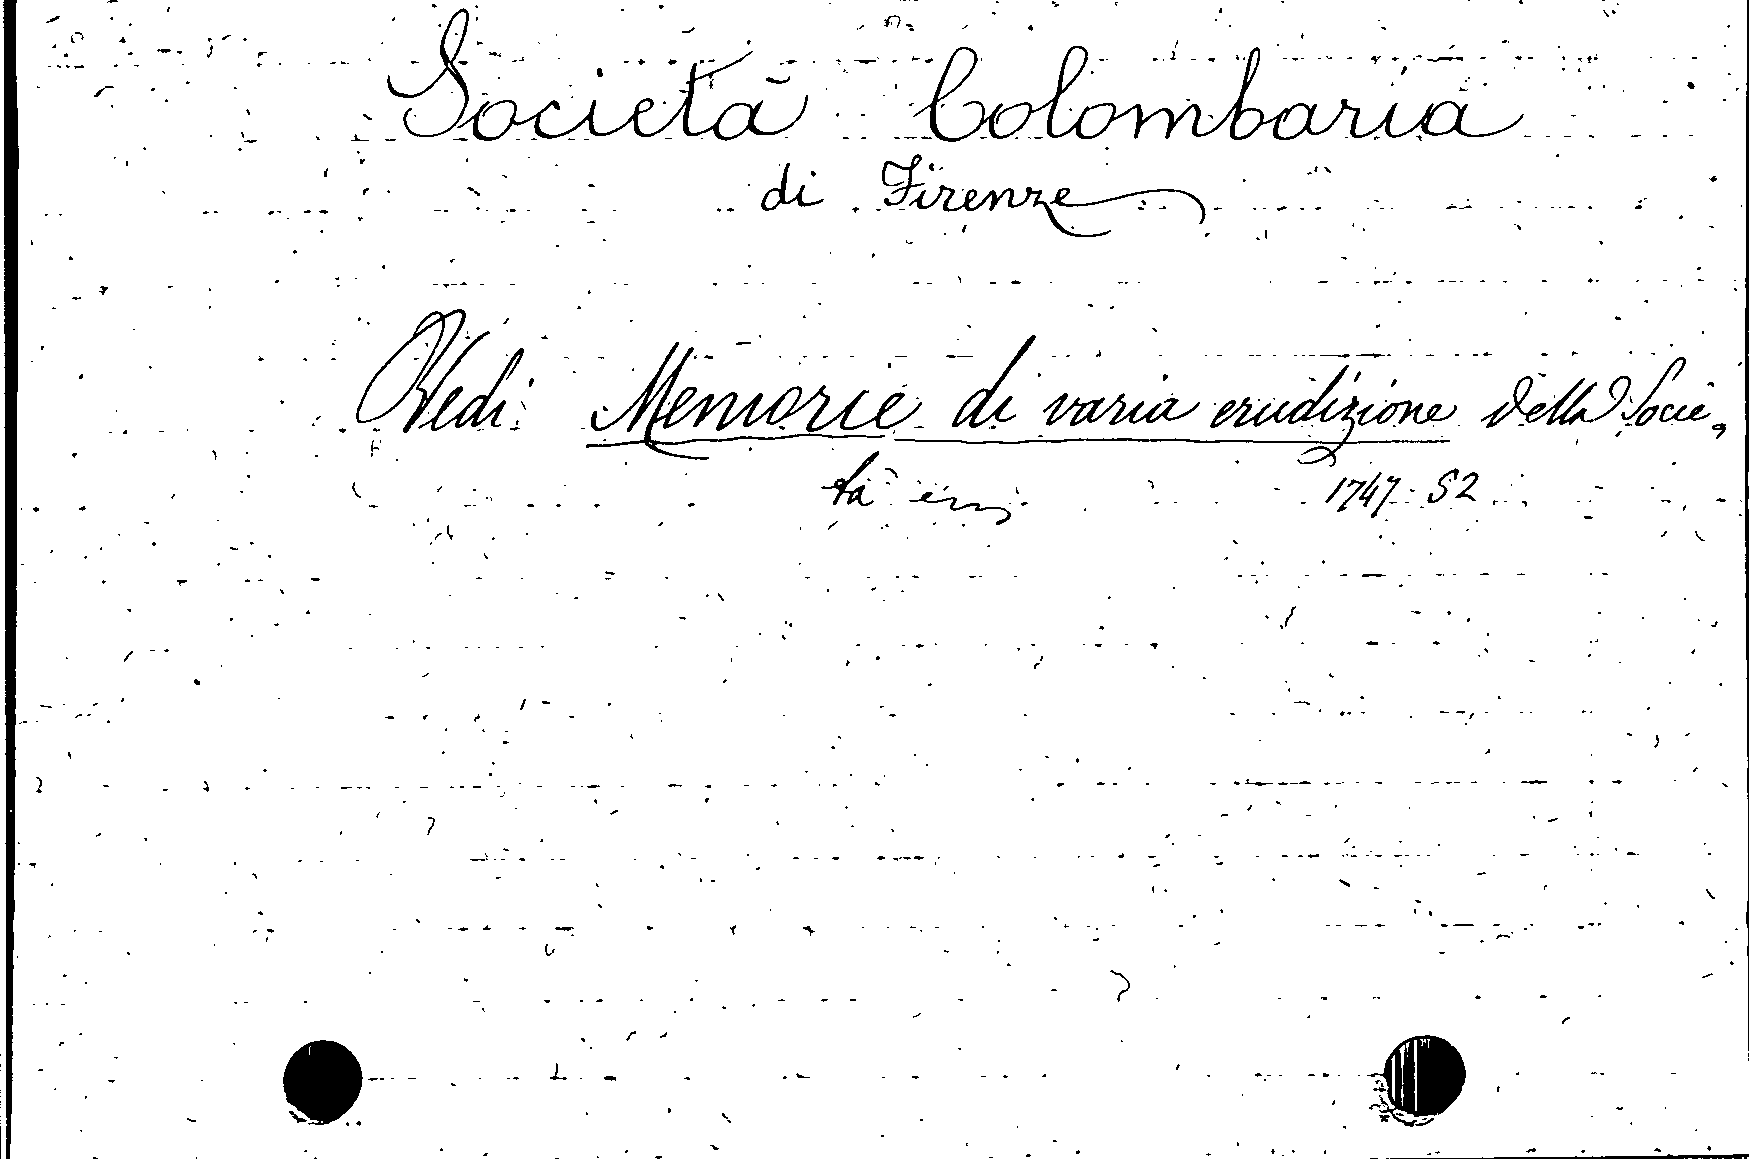 Società Colombaria
di Firenze
Vedi: Memorie di varia erudizione della Socie„
tà 1747-52